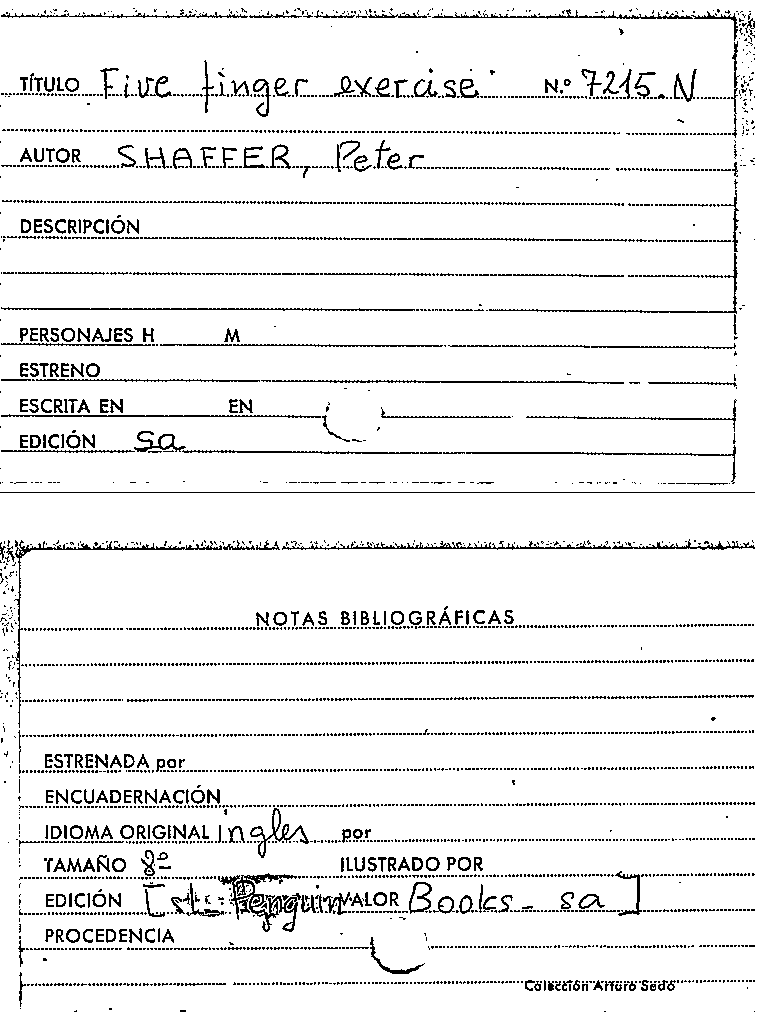 TÍTULO Five finger exercise N.º 7215.N
AUTOR SHAFFER, Peter
DESCRIPCIÓN
PERSONAJES H M
ESTRENO
ESCRITA EN EN
EDICIÓN sa
NOTAS BIBLIOGRÁFICAS
ESTRENADA por
ENCUADERNACIÓN
IDIOMA ORIGINAL ingles por
TAMAÑO 8º ILUSTRADO POR
EDICIÓN [sl: Penguin VALOR Books - sa]
PROCEDENCIA
Colección Arturo Sedó